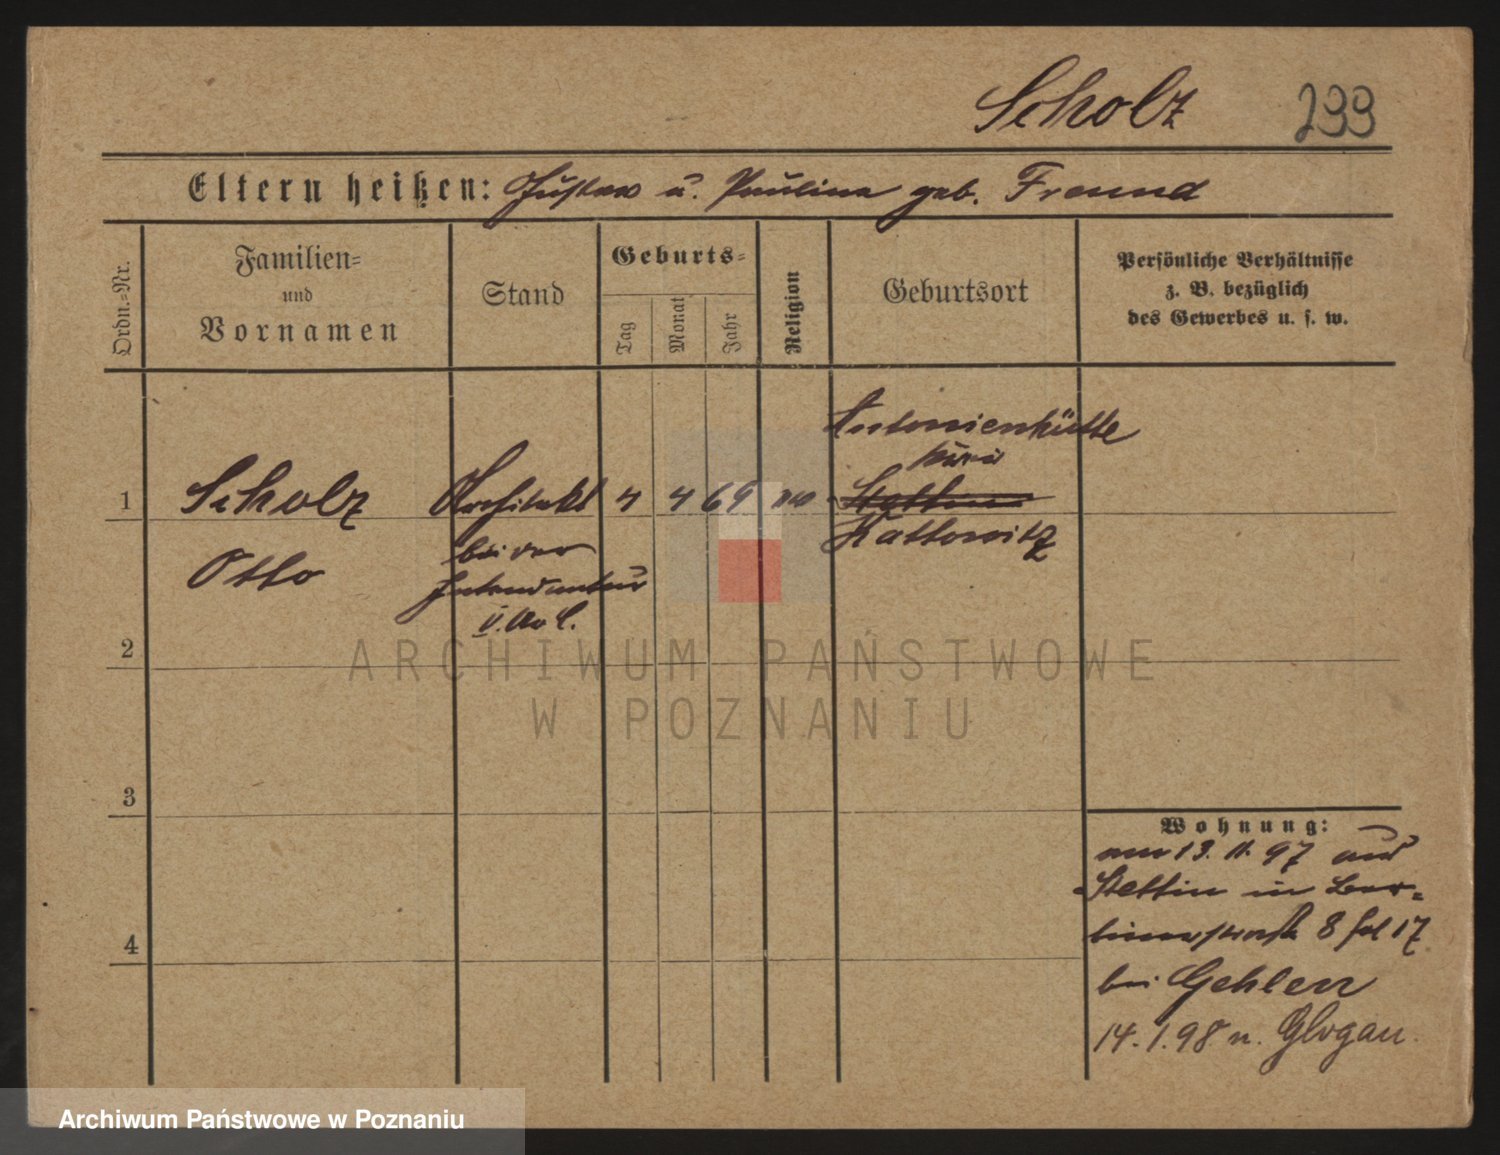 Scholz 299
Eltern heißen: Gustav u. Paulina geb. Freund
Ordn.=Nr.
Familien=
und
Vornamen
Stand
Geburts=
Tag
Monat
Jahr
Religion
Geburtsort
Persönliche Verhältnisse
z. B. bezüglich
des Gewerbes u. s. w.
Antonienhütte
Kreis
1 Scholz Architekt 4 4 69
Kattowitz
Otto bei der
Intendantur
V. A. C.
2
ARCHIWUM PAŃSTWOWE
W POZNANIU
3
4
Wohnung:
am 13. 11. 97 aus
Stettin in Ber=
linerstraße 8 fol 17
bei Gehlen
14. 1. 98 n. Glogau.
Archiwum Państwowe w Poznaniu